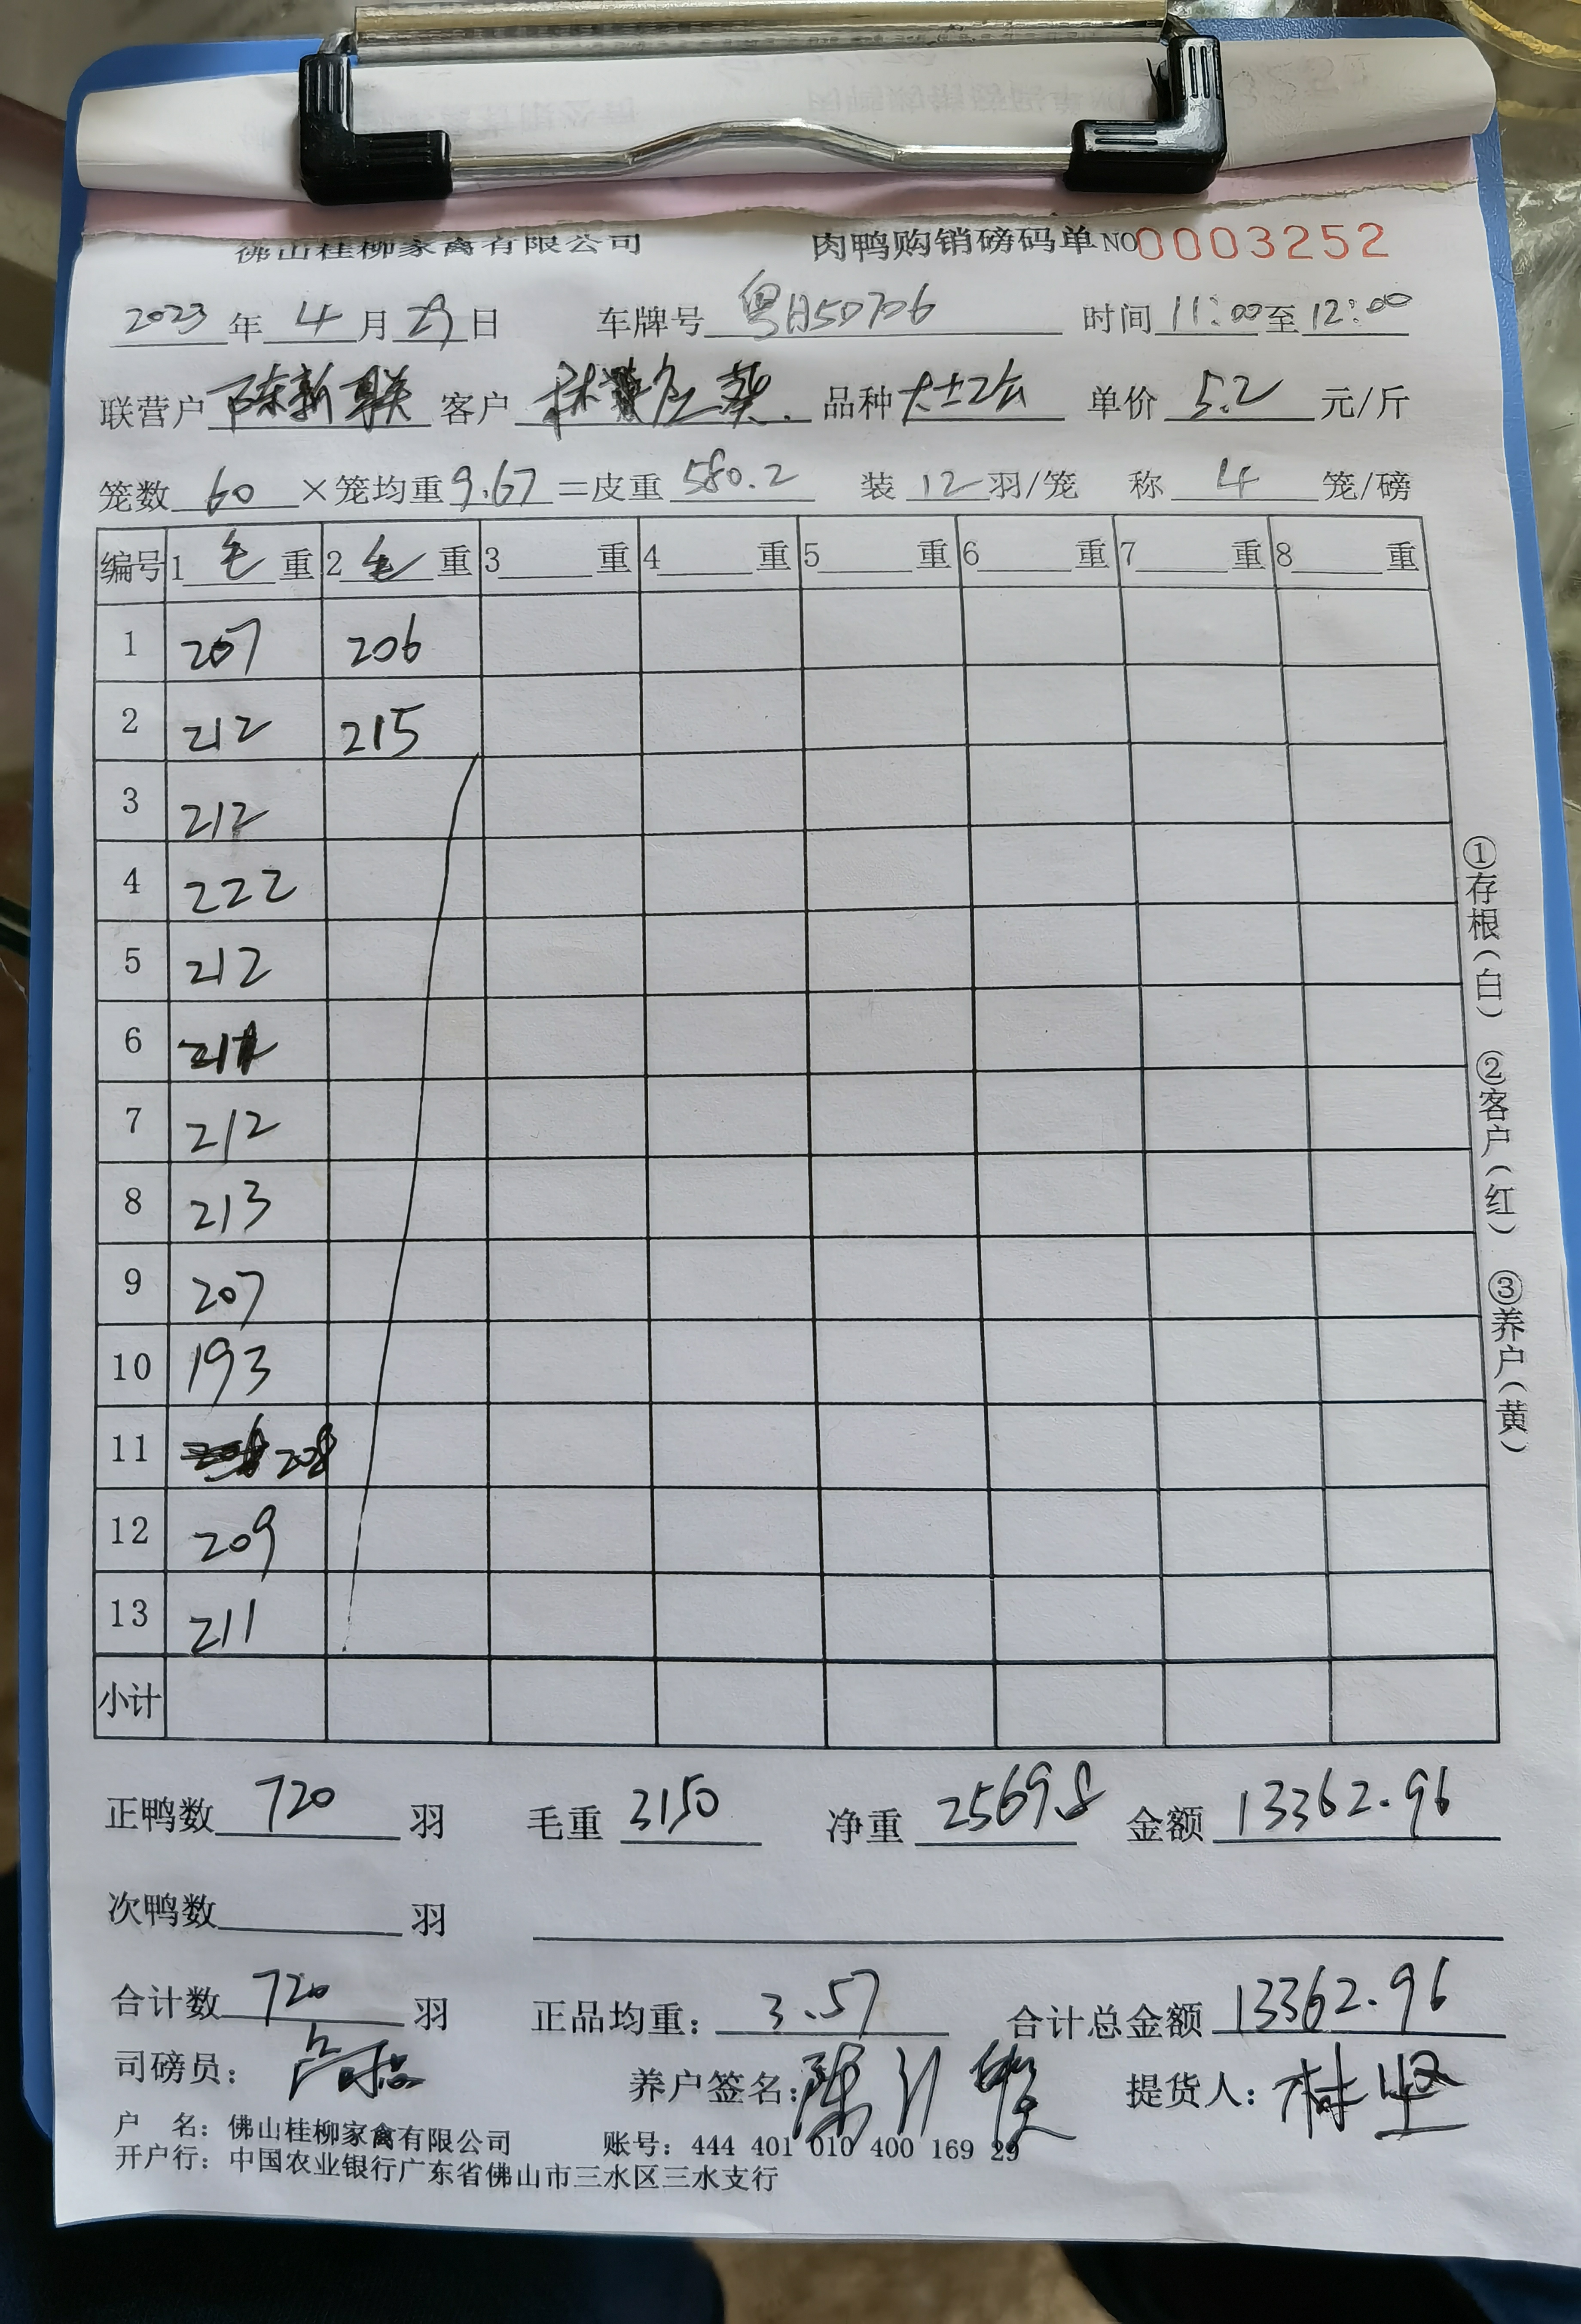 佛山桂柳家禽有限公司 肉鸭购销磅码单 NO 0003252
2023 年 4 月 29 日 车牌号 粤A50706 时间 11:00 至 12:00
联营户 陈新联 客户 品种 单价 5.2 元/斤
笼数 60 ×笼均重 9.67 =皮重 580.2 装 12 羽/笼 称 4 笼/磅
编号 1 毛 重 2 毛 重 3 重 4 重 5 重 6 重 7 重 8 重
1 207 206
2 212 215
3 212
4 222
5 212
6 211
7 212
8 213
9 207
10 193
11 208
12 209
13 211
小计
正鸭数 720 羽 毛重 3150 净重 2569.8 金额 13362.96
次鸭数 羽
合计数 720 羽 正品均重: 3.57 合计总金额 13362.96
司磅员: 养户签名: 提货人: 林坚
户 名: 佛山桂柳家禽有限公司 账号: 444 401 010 400 169 29
开户行: 中国农业银行广东省佛山市三水区三水支行
①存根(白) ②客户(红) ③养户(黄)